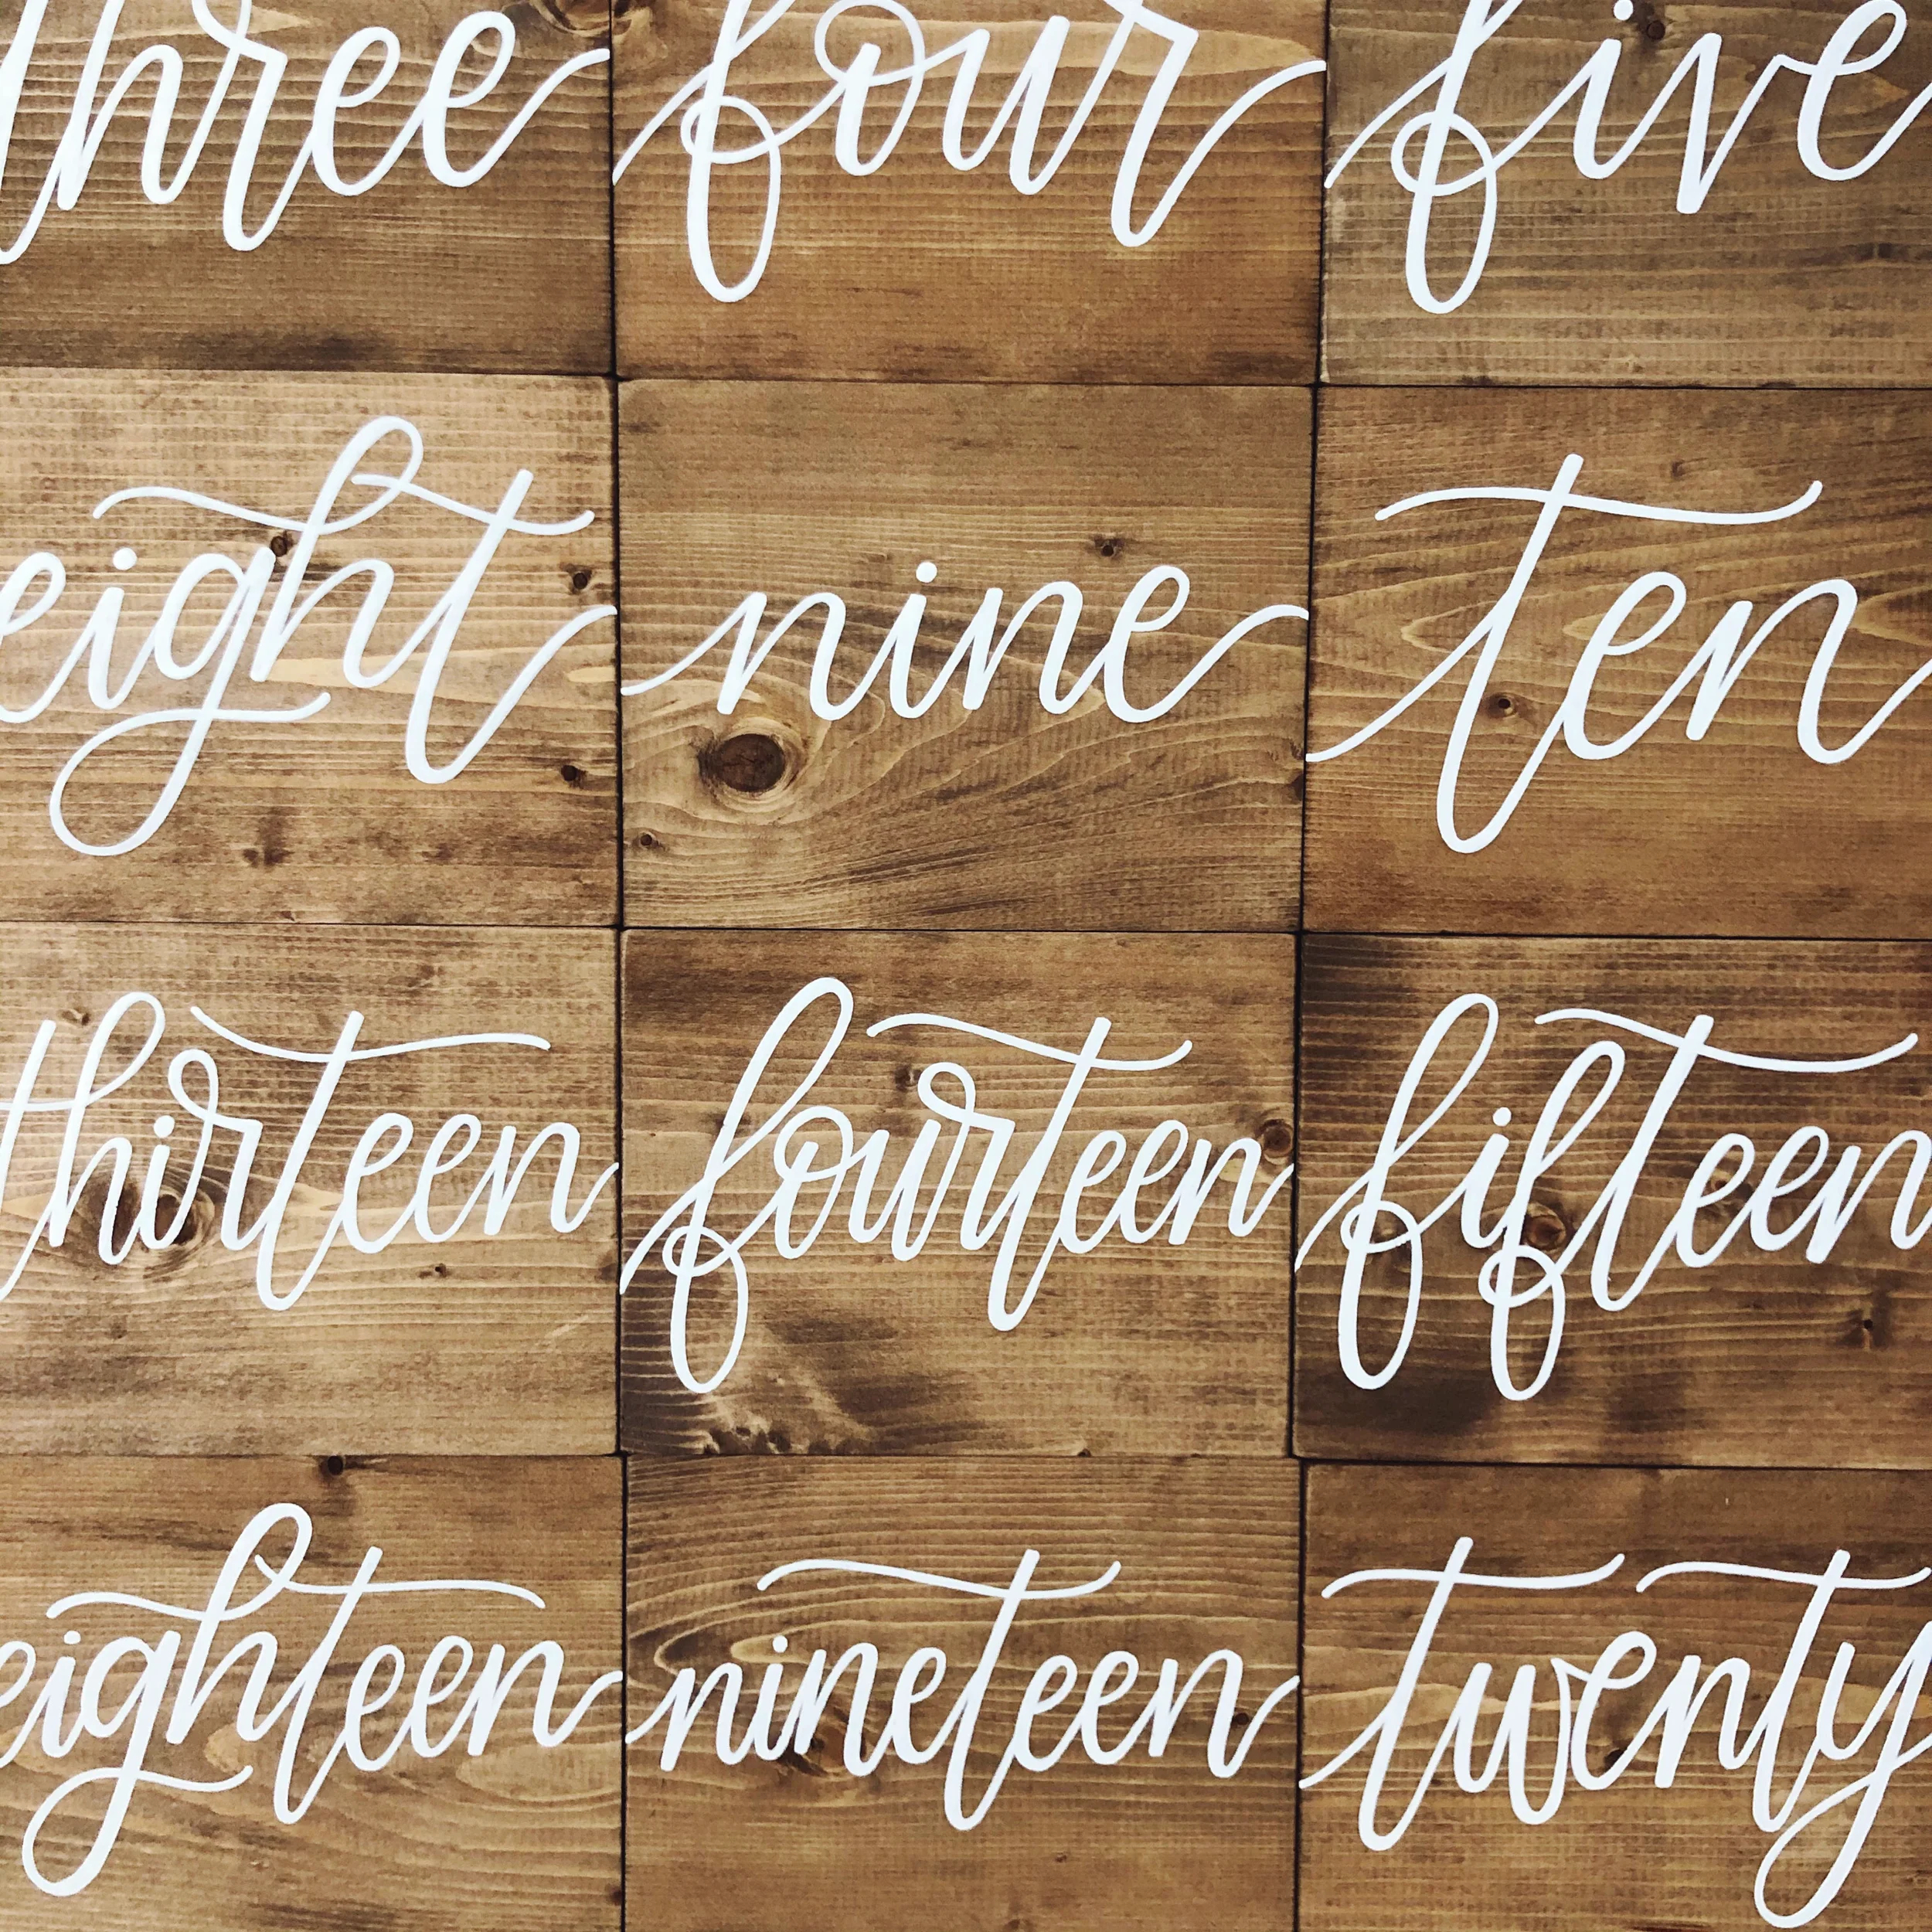 three four five
eight nine ten
thirteen fourteen fifteen
eighteen nineteen twenty